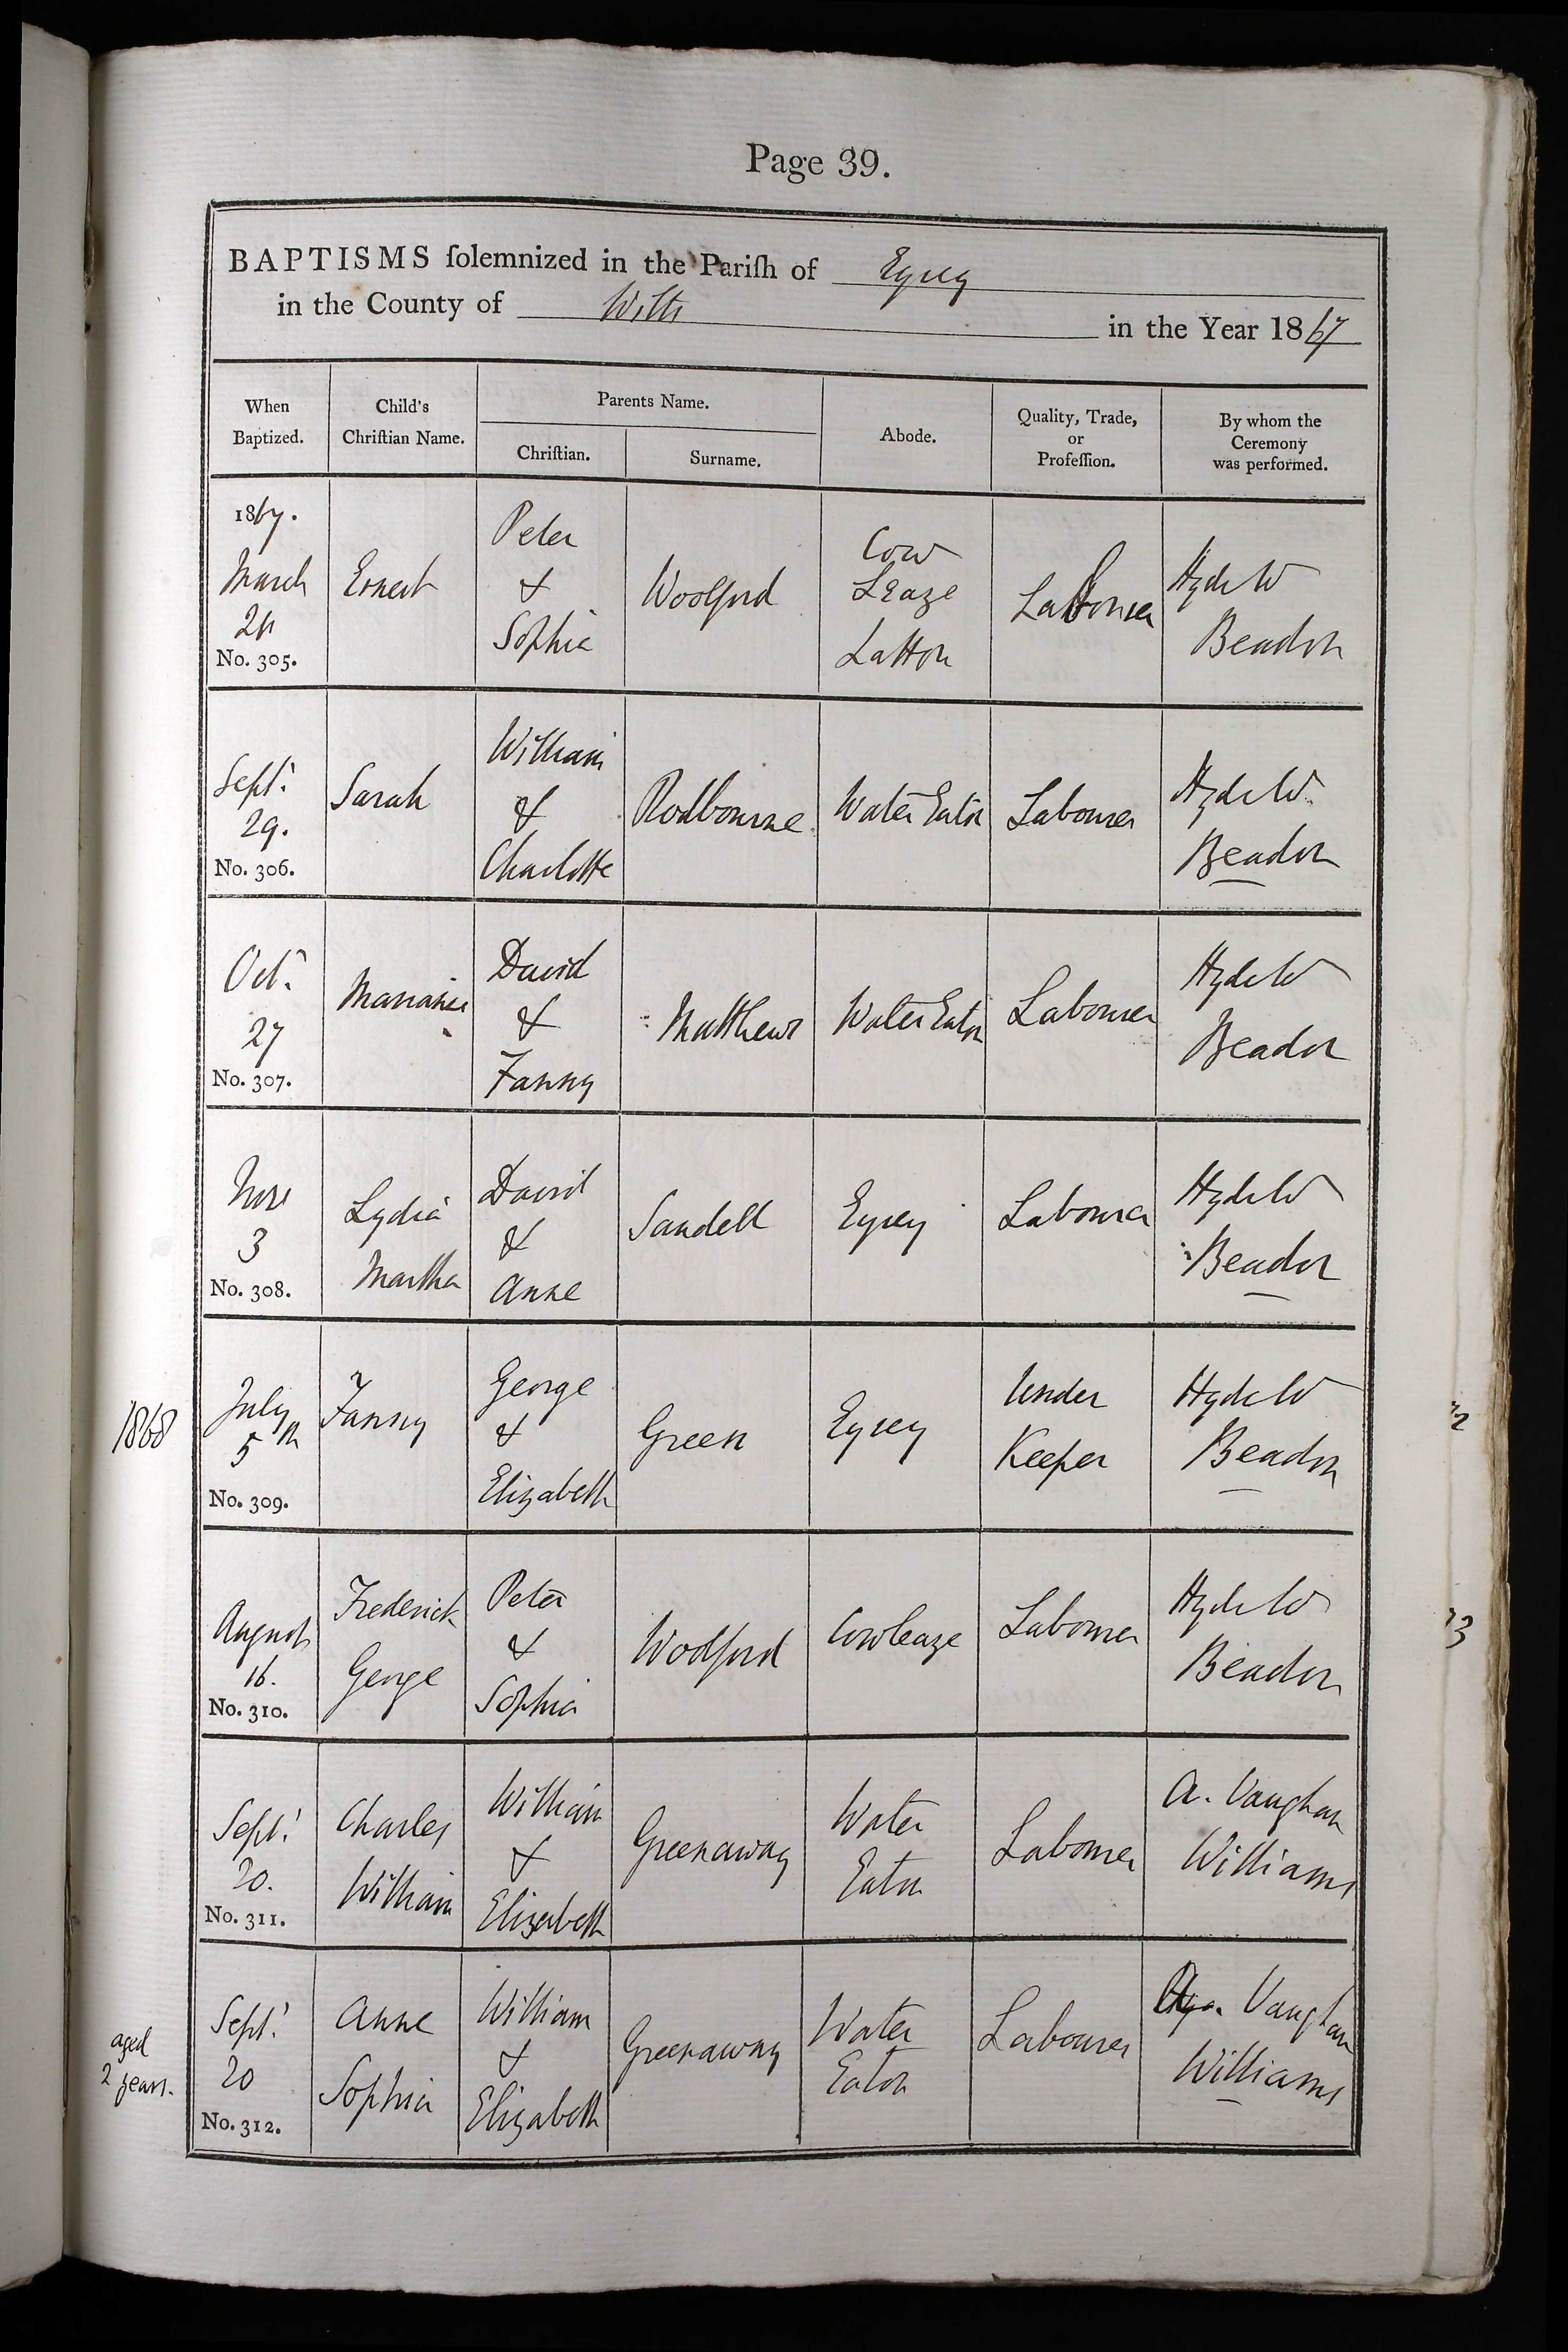 Page 39.
BAPTISMS ſolemnized in the Pariſh of Eysey
in the County of Wilts in the Year 1867
When Baptized. Child's Chriſtian Name. Parents Name. Abode. Quality, Trade, or Profeſſion. By whom the Ceremony was performed.
Chriſtian. Surname.
1867.
March
No. 305.
Ernest
Peter
&
Sophia
Woolford
Cow
Leaze
Latton
Labourer
Hyde W
Beadon
Sept.
29.
No. 306.
Sarah
William
&
Charlotte
Rodbourne
Water Eaton
Labourer
Hyde W.
Beadon
Oct.
27
No. 307.
David
&
Fanny
Matthews
Water Eaton
Labourer
Hyde W
Beadon
3
No. 308.
Lydia
Martha
David
&
Anne
Sandell
Eysey
Labourer
Hyde W
Beadon
1868
July
5th
No. 309.
Fanny
George
&
Elizabeth
Green
Eysey
Under
Keeper
Hyde W
Beadon
August
16.
No. 310.
Frederick
George
Peter
&
Sophia
Woolford
Cowleaze
Labourer
Hyde W
Beadon
Sept.
20.
No. 311.
Charles
William
William
&
Elizabeth
Greenaway
Water
Eaton
Labourer
A. Vaughan
Williams
aged
2 years.
Sept.
20
No. 312.
Anne
Sophia
William
&
Elizabeth
Greenaway
Water
Eaton
Labourer
Vaughan
Williams